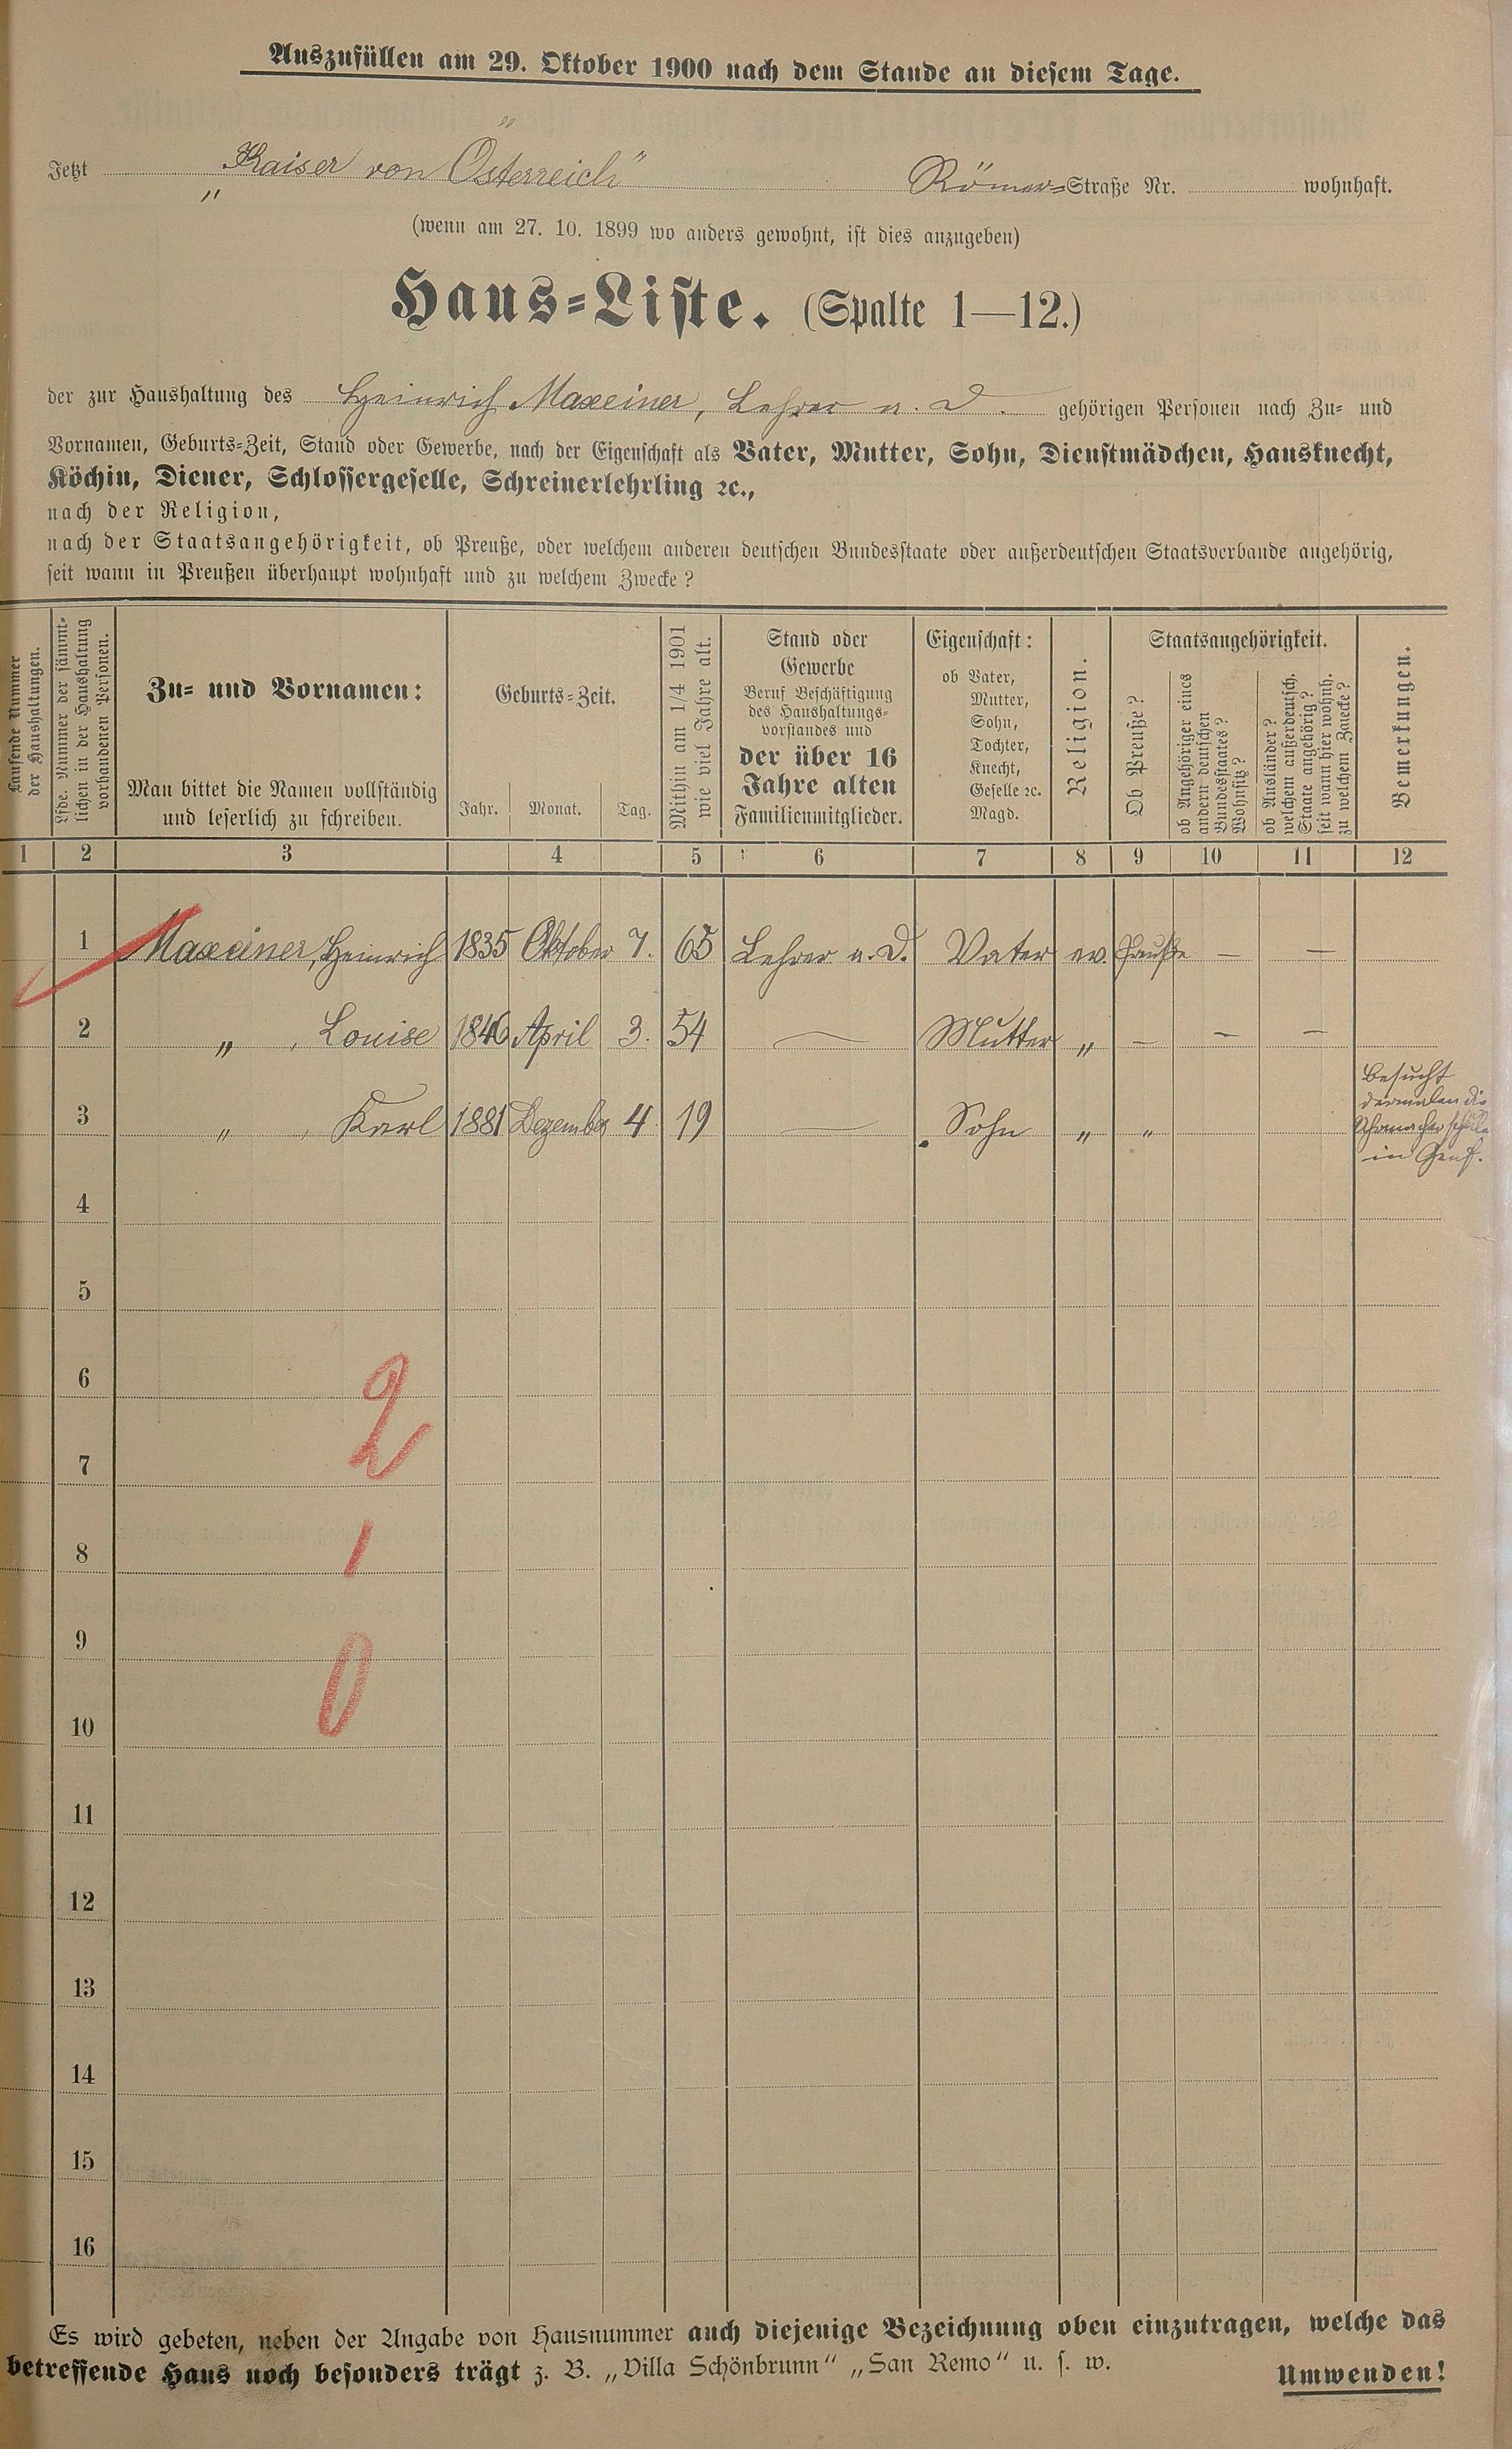 Auszufüllen am 29. Oktober 1900 nach dem Stande an diesem Tage.
Jetzt „Kaiser von Österreich“ Römer-Straße Nr. wohnhaft.
(wenn am 27. 10. 1899 wo anders gewohnt, ist dies anzugeben)
Haus-Liste. (Spalte 1—12.)
der zur Haushaltung des Heinrich Maxeiner, Lehrer a. D. gehörigen Personen nach Zu- und
Vornamen, Geburts-Zeit, Stand oder Gewerbe, nach der Eigenschaft als Vater, Mutter, Sohn, Dienstmädchen, Hausknecht,
Köchin, Diener, Schlossergeselle, Schreinerlehrling ꝛc.,
nach der Religion,
nach der Staatsangehörigkeit, ob Preuße, oder welchem anderen deutschen Bundesstaate oder außerdeutschen Staatsverbande angehörig,
seit wann in Preußen überhaupt wohnhaft und zu welchem Zwecke?
Laufende Nummer
der Haushaltungen.
Lfde. Nummer der sämmt-
lichen in der Haushaltung
vorhandenen Personen.
Zu- und Vornamen:
Man bittet die Namen vollständig
und leserlich zu schreiben.
Geburts-Zeit.
Jahr. Monat. Tag.
Mithin am 1/4 1901
wie viel Jahre alt.
Stand oder
Gewerbe
Beruf Beschäftigung
des Haushaltungs-
vorstandes und
der über 16
Jahre alten
Familienmitglieder.
Eigenschaft:
ob Vater,
Mutter,
Sohn,
Tochter,
Knecht,
Geselle ꝛc.
Magd.
Religion.
Staatsangehörigkeit.
Ob Preuße?
ob Angehöriger eines
andern deutschen
Bundesstaates?
Wohnsitz?
ob Ausländer?
welchem außerdeutsch.
Staate angehörig?
seit wann hier wohnh.
zu welchem Zwecke?
Bemerkungen.
1 2 3 4 5 6 7 8 9 10 11 12
1 Maxeiner, Heinrich 1835 Oktober 7. 65 Lehrer a. D. Vater ev. Preuße — —
2 „ , Louise 1846 April 3. 54 — Mutter „ — — —
3 „ , Karl 1881 Dezember 4. 19 — Sohn „ „
besucht
dermalen die
in Genf.
4
5
6
2
7
8
1
9
0
10
11
12
13
14
15
16
Es wird gebeten, neben der Angabe von Hausnummer auch diejenige Bezeichnung oben einzutragen, welche das
betreffende Haus noch besonders trägt z. B. „Villa Schönbrunn“ „San Remo“ u. s. w.
Umwenden!